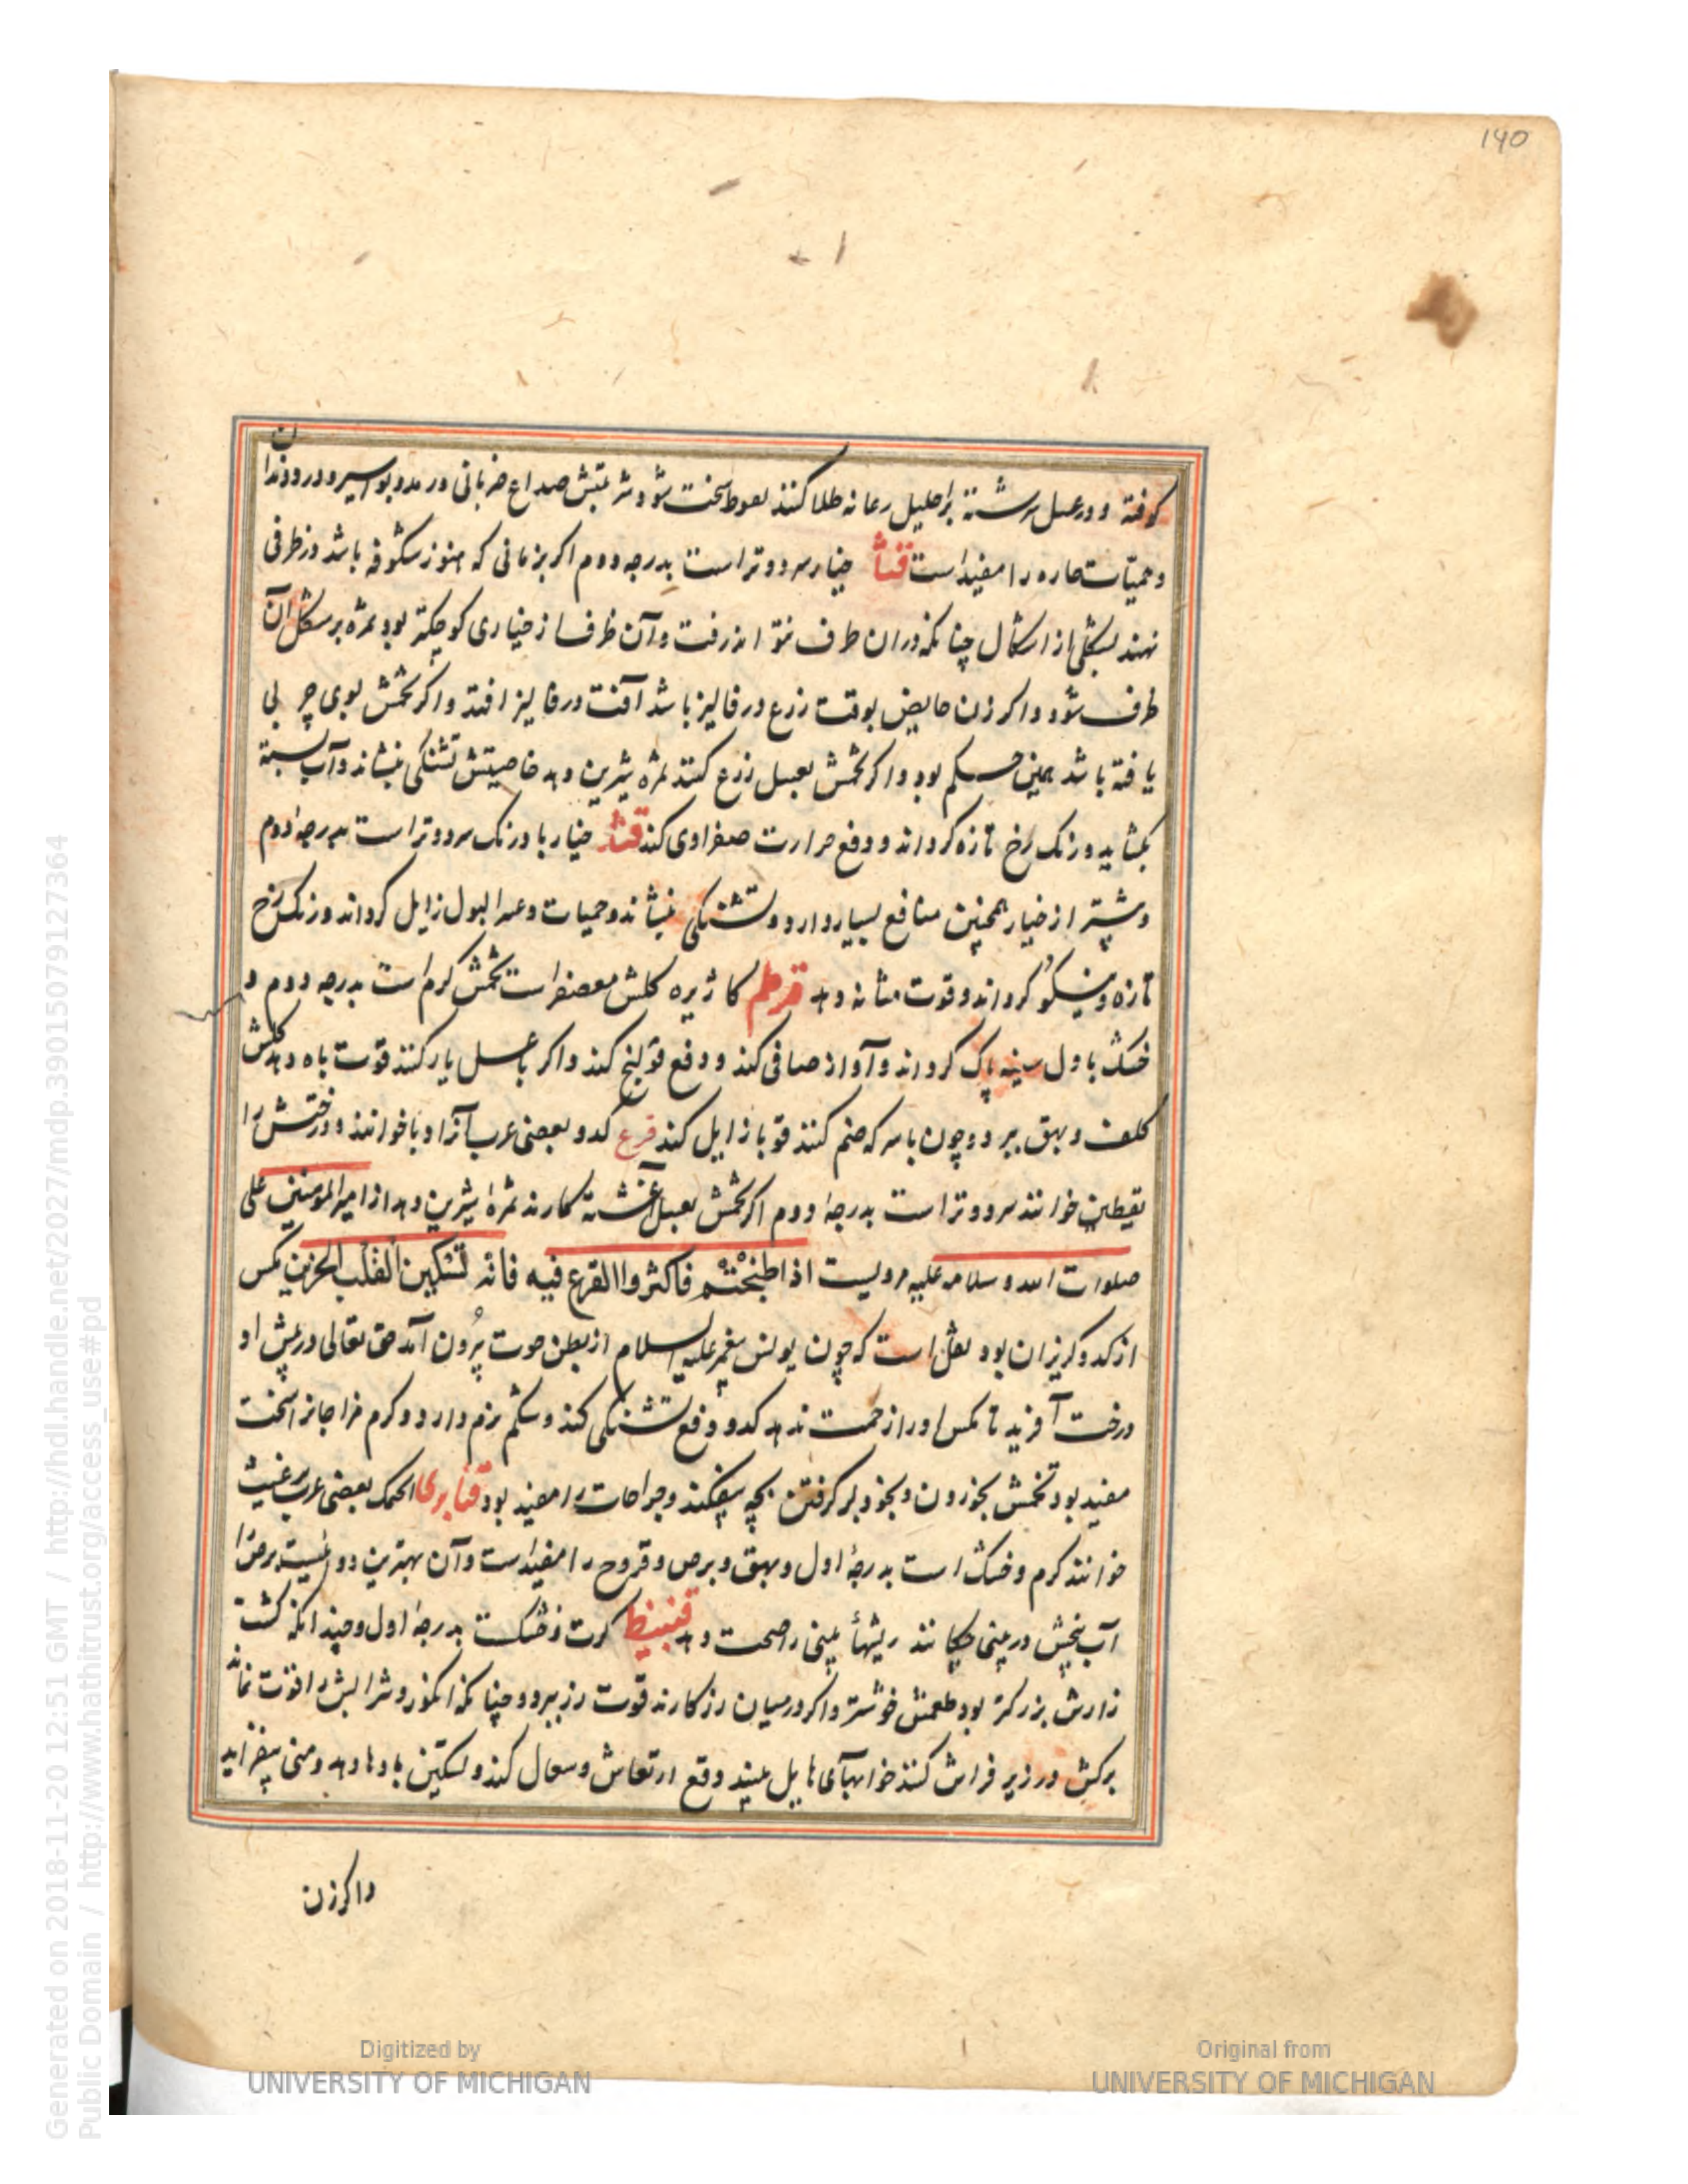 190
کوفته و در عسل سرشته براحلیل و عانه طلا کنند نعوظ سخت شود و شربتش صداع ضربانی و رمد و بواسیر و درد دندان
و حمیّات حاره را مفید است قثا خیار سرد و تر است بدرجه دوم اکر بزمانی که هنوز شکوفه باشد در ظرفی
نهند بشکلی از اشکال چنانکه در ان ظرف نتواند رفت و آن ظرف از خیاری کوچکتر بود ثمره بر شکل آن
ظرف شود و اکر زن حایض بوقت زرع در فالیز باشد آفت در فالیز افتد و اکر تخمش بوی چربی
یافته باشد همین حکم بود و اکر تخمش بعسل زرع کنند ثمره شیرین دهد خاصیتش تشنکی بنشاند و آب بسته
بکشاید و رنک رخ تازه کرداند و دفع حرارت صفراوی کند قثد خیار بادرنک سرد و تر است بدرجه دوم
و بیشتر از خیار همچنین منافع بسیار دارد و تشنکی بنشاند و حمیات و عسر البول زایل کرداند و رنک رخ
تازه و نیکو کرداند و قوت مثانه دهد قرطم کاژیره کلش معصفر است تخمش کرم است بدرجه دوم و
خشک باول سینه پاک کرداند و آواز صافی کند و دفع قولنج کند و اکر با عسل یار کنند قوت باه دهد کلش
کلف و بهق ببرد و چون با سرکه ضم کنند قوبا زایل کند قرع کدو بعضی عرب آنرا دبا خوانند و درختش را
یقطین خوانند سرد و تر است بدرجه دوم اکر تخمش بعسل آغشته کارند ثمره شیرین دهد از امیرالمومنین علی
صلوات الله و سلامه علیه مرویست اذا طبختم فاکثروا القرع فیه فانه تسکین القلب الحزین مکس
از کدو کریزان بود نقل است که چون یونس پیغمبر علیه السلام از بطن حوت بیرون آمد حق تعالی در پیش او
درخت آفرید تا مکس او را زحمت ندهد کدو دفع تشنکی کند و شکم نرم دارد و کرم مزاجانرا سخت
مفید بود تخمش بخوردن و بخود برکرفتن بچه بیفکند و جراحات را مفید بود قنابری الحمک بعضی عرب غیث
خوانند کرم و خشک است بدرجه اول و بهق و برص و قروح را مفید است و آن بهترین دوائیست برص را
آب بیخش در بینی چکانند ریشهاء بینی را صحت دهد قنبیط کرنب و خشکست بدرجه اول و چندانکه کشت
زارش بزرکتر بود طعمش خوشتر و اکر در میان رز کارند قوت رز ببرد و چنانکه انکور و شرابش را قوت نماند
برکش در زیر فراش کنند خوابهآی هایل بیند دفع ارتعاش و سعال کند و تسکین بادها دهد و منی بیفزاید
و اکر زن
Digitized by
UNIVERSITY OF MICHIGAN
Original from
UNIVERSITY OF MICHIGAN
Generated on 2018-11-20 12:51 GMT / http://hdl.handle.net/2027/mdp.39015079127364
Public Domain / http://www.hathitrust.org/access_use#pd